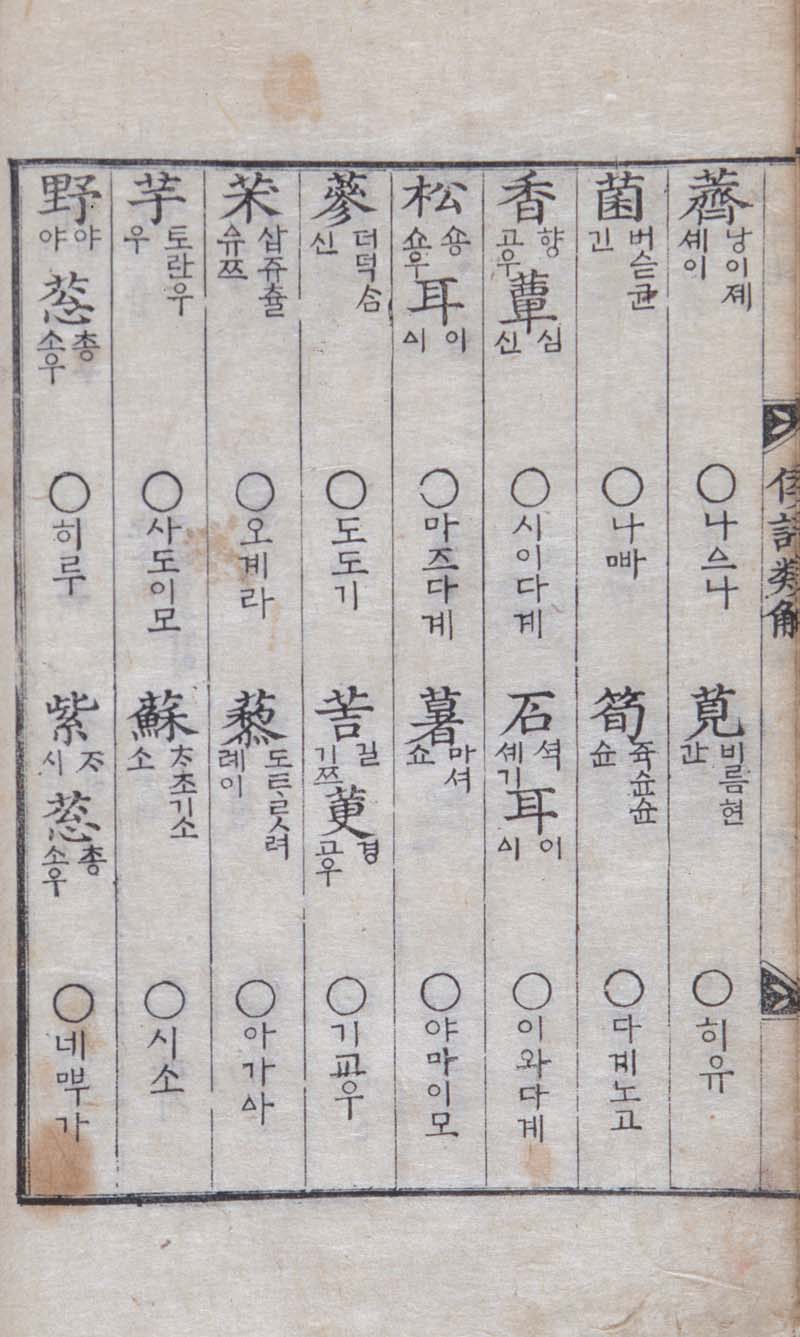 倭語類解
薺 낭이졔 셰이 ○나ᅀᅳ나 莧 비름현 간 ○히유
菌 버슫균 긴 ○나ᄲᅡ 筍 쥭슌슌 슌 ○다계노고
香 향 고우 蕈 심 신 ○시이다계 石 셕 셰기 耳 이 ᅀᅵ ○이와다계
松 숑 쇼우 耳 이 ᅀᅵ ○마즈다계 薯 마셔 쇼 ○야마이모
蔘 더덕ᄉᆞᆷ 신 ○도도기 苦 길 기쯔 莄 경 고우 ○기교우
茉 삽쥬츌 슈쯔 ○오계라 藜 도ᄐᆞ랏려 례이 ○아가ᅀᅡ
芋 토란우 우 ○사도이모 蘇 ᄎᆞ초기소 소 ○시소
野 야 야 葱 총 소우 ○히루 紫 ᄌᆞ 시 葱 총 소우 ○네ᄲᅮ가